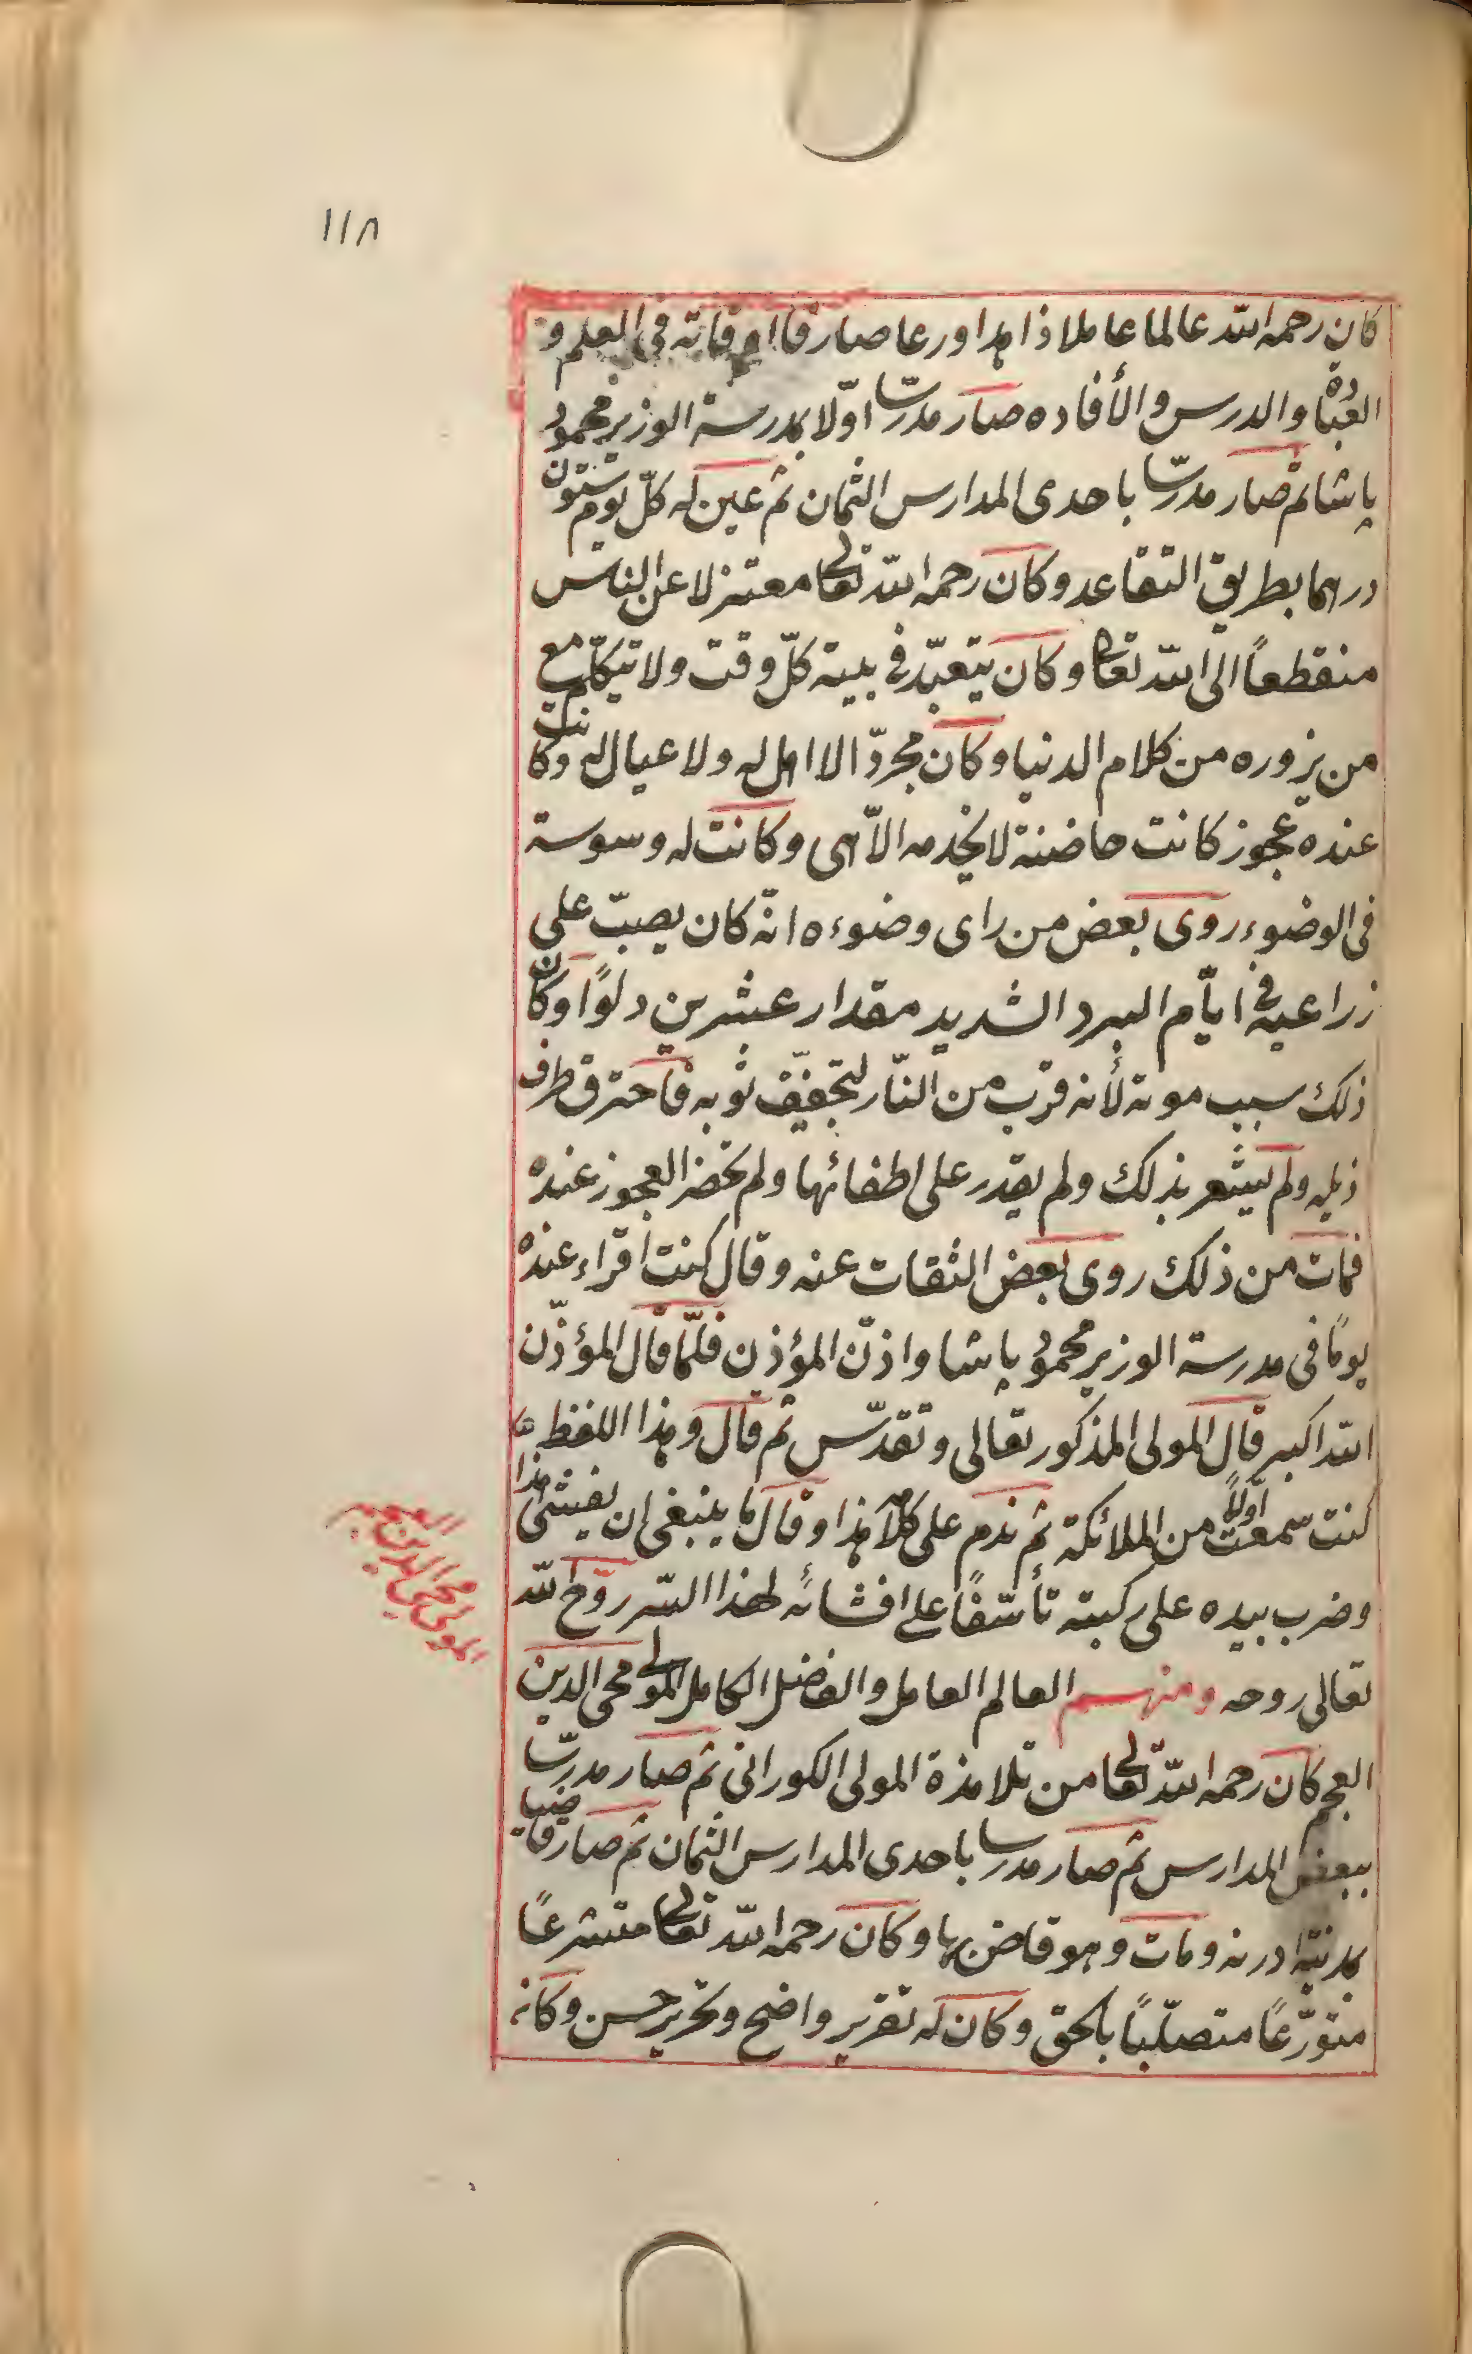 ١١٨
كان رحمه الله عالما عاملا زاهدا ورعا صارفا اوقاته فى العلم و
العبادة والدرس والأفاده صار مدرسا اوّلا بمدرسة الوزير محمود
پاشا ثم صار مدرسّا باحدى المدارس الثمان ثم عين له كلّ يوم ستون
درهما بطريق التقاعد وكان رحمه الله تعالى معتزلا عن الناس
منقطعاً الى الله تعالى وكان يتعبّد فى بيته كلّ وقت ولا تيكلّم مع
من يزوره من كلام الدنيا وكان مجردّا لا اهل له ولا عيال له وكانت
عنده عجوز كانت حاضنة لا يخدمه الاّ هى وكانت له وسوسة
فى الوضوء روى بعض من راى وضوءه انّه كان يصبّ على
زراعيه فى ايّام البرد الشديد مقدار عشرين دلوًا وكان
ذلك سبب موته لأنه قرب من النّار لتجفيّف ثوبه فاحترق طرف
ذيله ولم يشعر بذلك ولم يقدر على اطفائها ولم تحضر العجوز عنده
فمات من ذلك روى بعض الثقات عنه وقال كنت اقراء عنده
يومًا فى مدرسة الوزير محمود پاشا واذّن المؤذن فلمّا قال المؤذّن
الله اكبر قال المولى المذكور تعالى وتقدّس ثم قال وهذا اللفظ
كنت سمعت اوّلاً من الملائكة ثم ندم على كلامه هذا وقال ما ينبغى ان يفشى هذا
وضرب بيده على ركبته تأسّفًا على افشائه لهذا السّر روّح الله
تعالى روحه ومنهم العالم العامل والفاضل الكامل المولى محى الدين
العجم كان رحمه الله تعالى من تلامذة المولى الكورانى ثم صار مدرسّا
ببعض المدارس ثم صار مدرسا باحدى المدارس الثمان ثم صار قاضيا
بمدينة ادرنه ومات وهو قاض بها وكان رحمه الله تعالى متشرعًا
متورّعًا متصلّبًا بالحق وكان له تقرير واضح وتحرير حسن وكانه
المولى محى الدين العجم